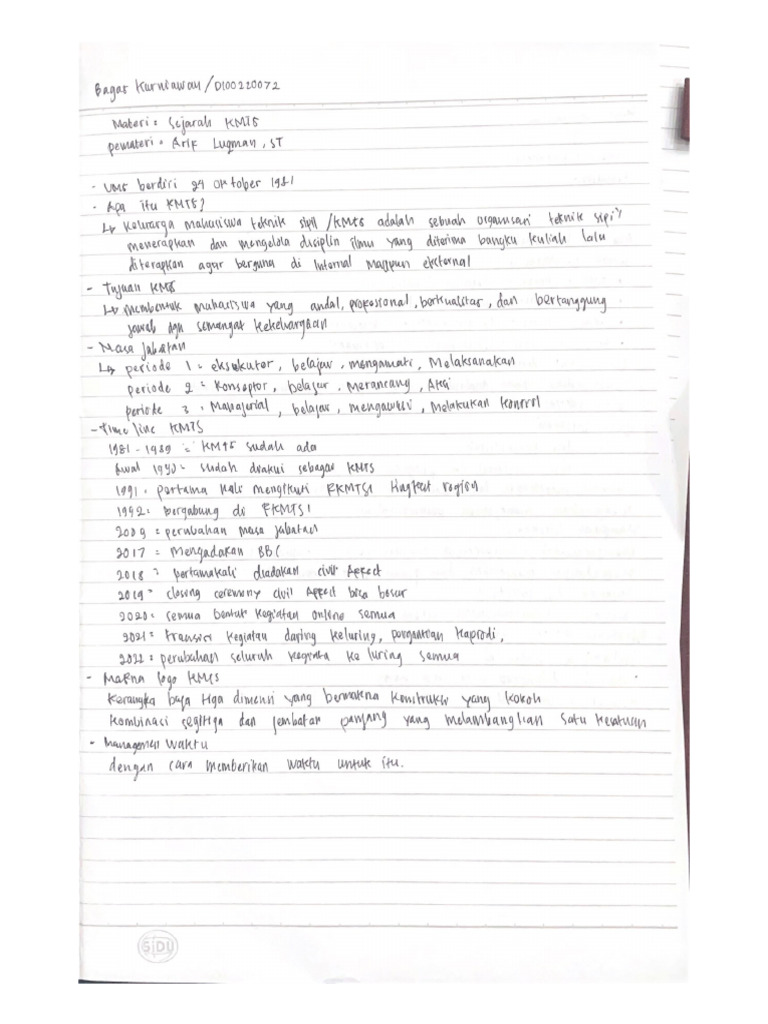 Bagas Kurniawan/D100220072
Materi : Sejarah KMTS
Pemateri : Arif Luqman, ST
- UMS berdiri 24 oktober 1981
- Apa itu KMTS?
↳ Keluarga mahasiswa teknik sipil /KMTS adalah sebuah organisasi teknik sipil
menerapkan dan mengelola disiplin ilmu yang diterima bangku kuliah lalu
diterapkan agar berguna di Internal maupun eksternal
- Tujuan KMTS
↳ membentuk mahasiswa yang andal, professional, berkualitas, dan bertanggung
jawab dgn semangat kekeluargaan
- Masa Jabatan
↳ periode 1 = eksekutor, belajar, mengamati, Melaksanakan
periode 2 = Konseptor, belajar, Merancang, Aksi
periode 3 . Manajerial, belajar, mengawasi, Melakukan kontrol
- Time line KMTS
1981 - 1989 = KMTS sudah ada
Awal 1990 = sudah diakui sebagai KMTS
1991 . pertama kali mengikuti FKMTSI tingkat region
1992 = bergabung di FKMTSI
2009 = perubahan masa jabatan
2017 = mengadakan BBC
2018 = pertamakali diadakan civil Affect
2019 = closing ceremony civil Affect bisa besar
2020 = semua bentuk kegiatan online semua
2021 = transisi kegiatan daring keluring, pergantian kaprodi,
2022 = perubahan seluruh kegiatan ke luring semua
- Makna logo KMTS
Kerangka baja tiga dimensi yang bermakna konstruksi yang kokoh
kombinasi segitiga dan jembatan panjang yang melambangkan satu kesatuan
- Management waktu
dengan cara memberikan waktu untuk itu.
SIDU